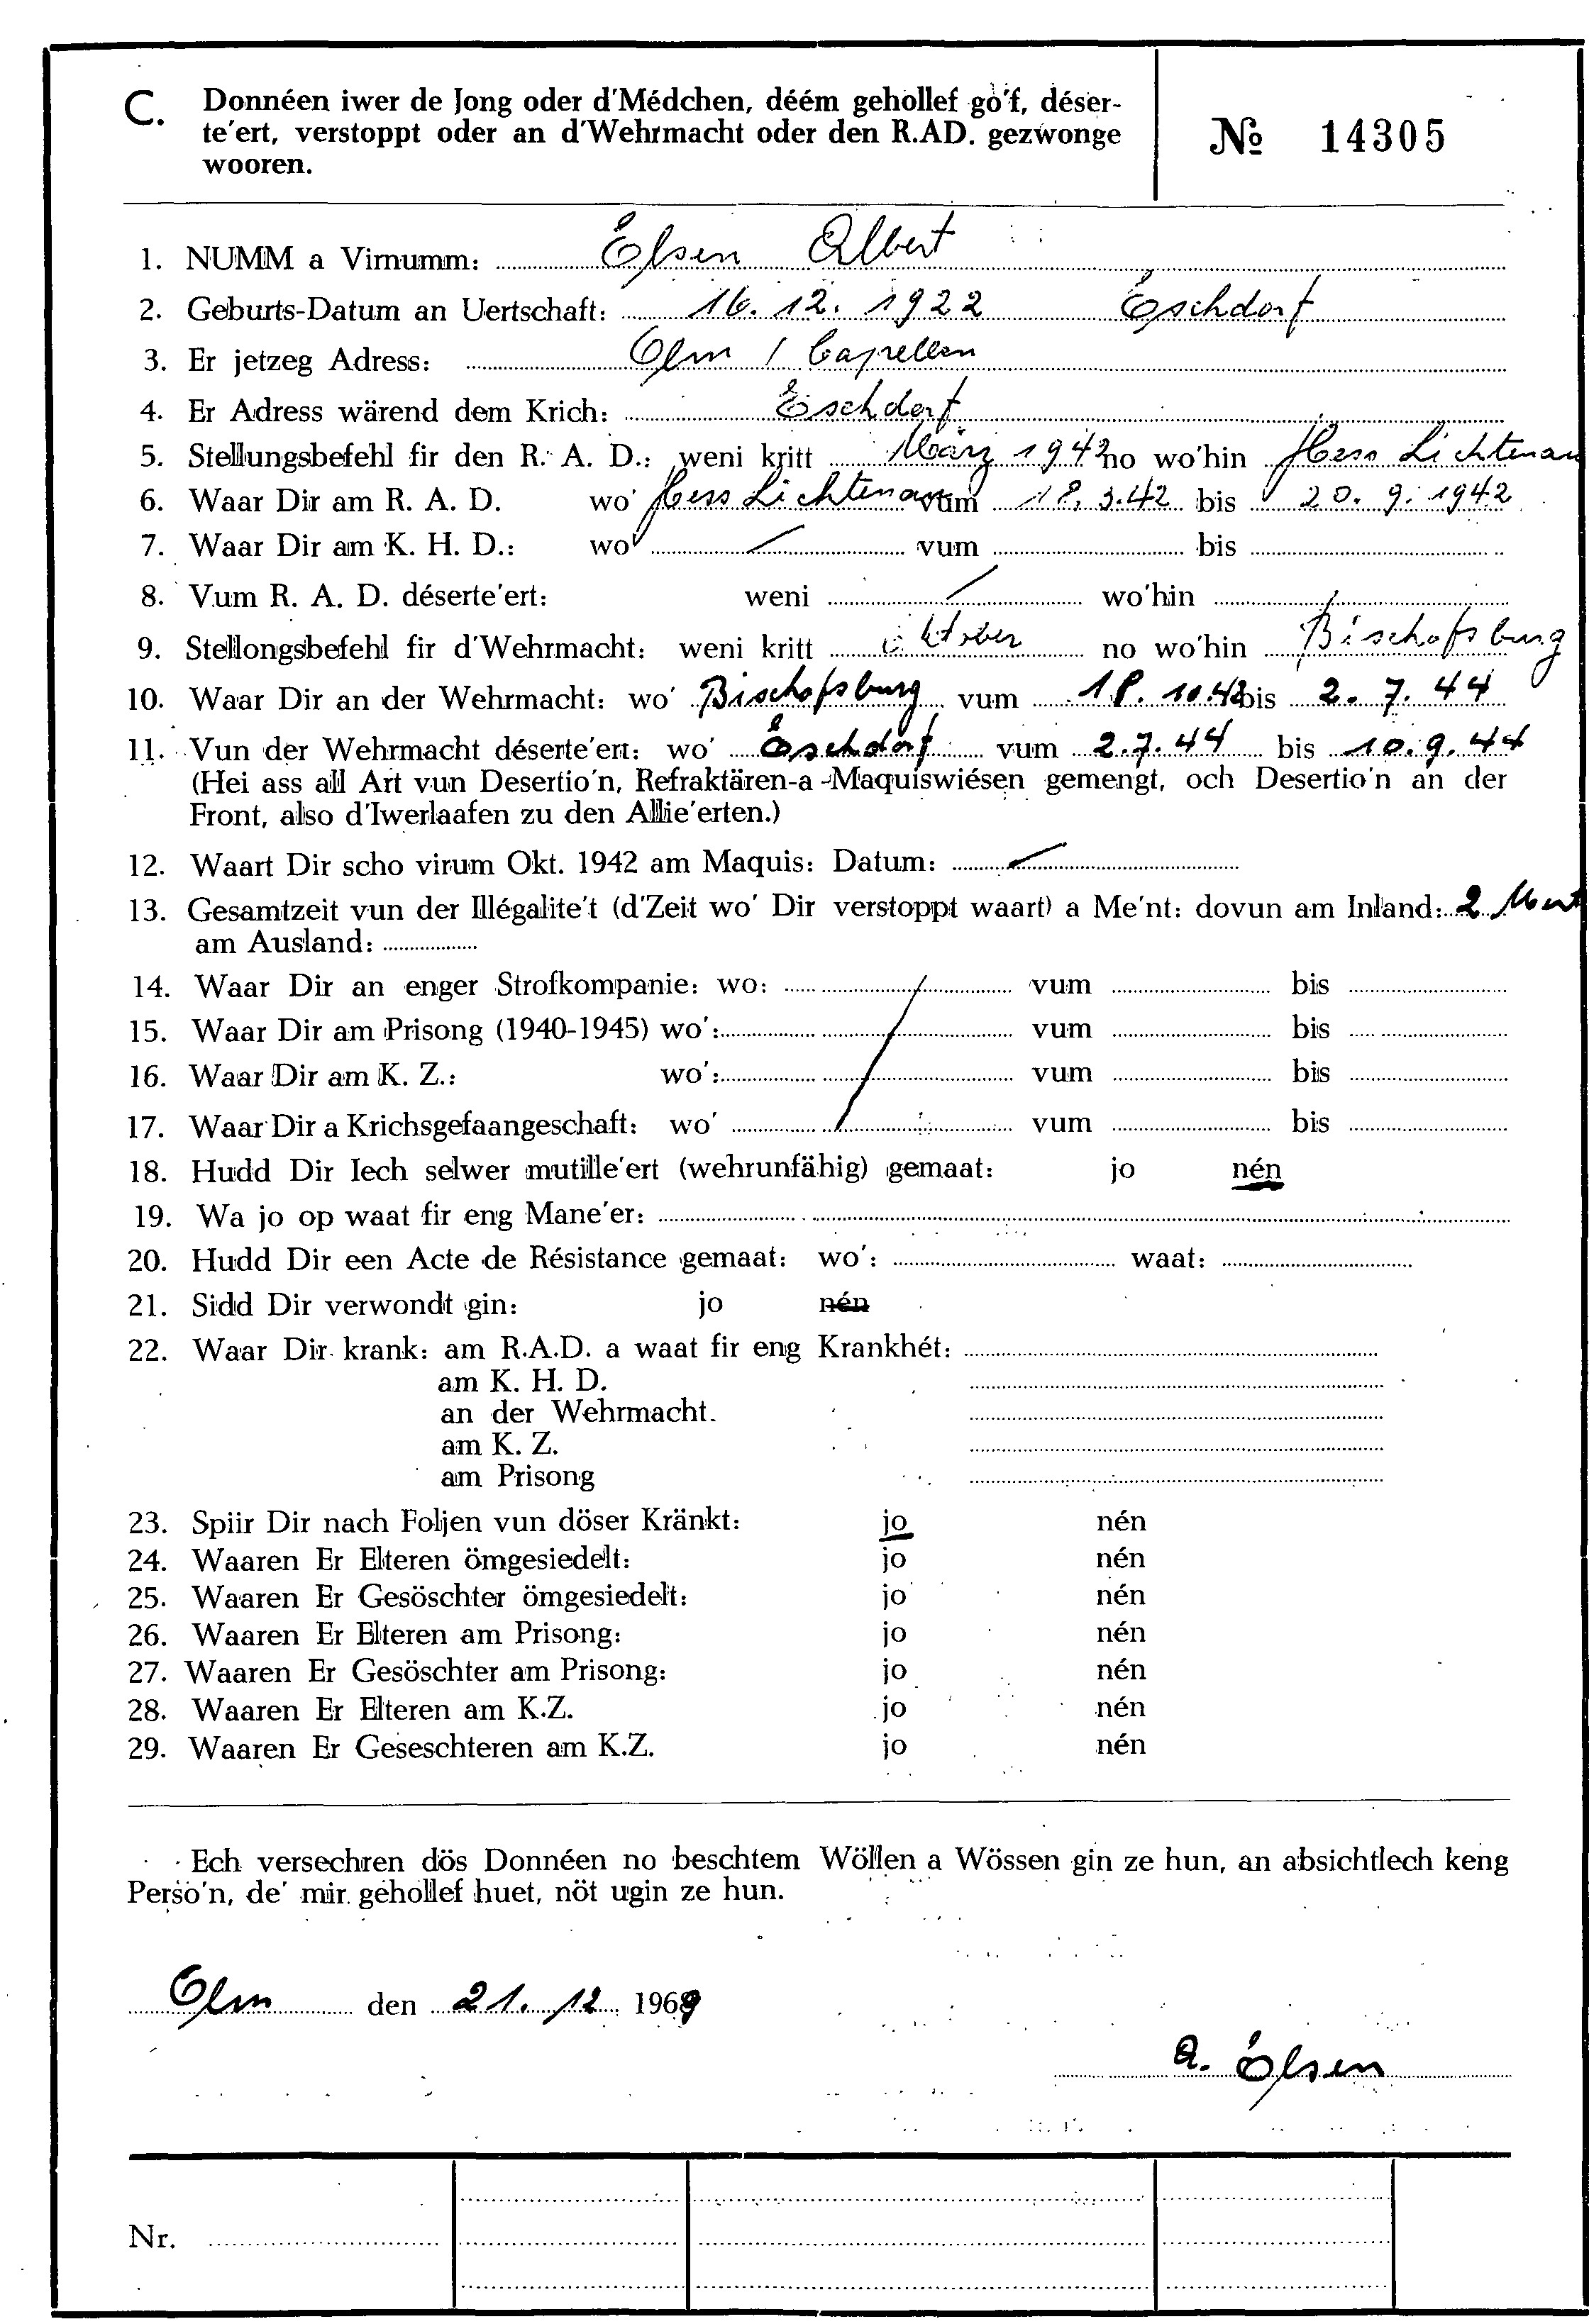 C. Donnéen iwer de Jong oder d'Médchen, déém gehollef go'f, déser-
te'ert, verstoppt oder an d'Wehrmacht oder den R.AD. gezwonge
wooren.
№ 14305
1. NUMM a Virnumm: Elsen Albert
2. Geburts-Datum an Uertschaft: 16. 12. 1922 Eschdorf
3. Er jetzeg Adress: Olm / Capellen
4. Er Adress wärend dem Krich: Eschdorf
5. Stellungsbefehl fir den R. A. D.: weni kritt März 1942 no wo'hin Hess Lichtenau
6. Waar Dir am R. A. D. wo' Hess Lichtenau vum 18.3.42 bis 20. 9. 1942
7. Waar Dir am K. H. D.: wo' / vum bis
8. Vum R. A. D. déserte'ert: weni / wo'hin
9. Stellongsbefehl fir d'Wehrmacht: weni kritt Oktober no wo'hin Bischofsburg
10. Waar Dir an der Wehrmacht: wo' Bischofsburg vum 18. 10.42 bis 2. 7. 44
11. Vun der Wehrmacht déserte'ert: wo' Eschdorf vum 2.7.44 bis 10.9.44
(Hei ass all Art vun Desertio'n, Refraktären-a -Maquiswiésen gemengt, och Desertio'n an der
Front, also d'Iwerlaafen zu den Allie'erten.)
12. Waart Dir scho virum Okt. 1942 am Maquis: Datum: /
13. Gesamtzeit vun der Illégalite't (d'Zeit wo' Dir verstoppt waart) a Me'nt: dovun am Inland: 2
am Ausland:
14. Waar Dir an enger Strofkompanie: wo: vum bis
15. Waar Dir am Prisong (1940-1945) wo': vum bis
16. Waar Dir am K. Z.: wo': vum bis
17. Waar Dir a Krichsgefaangeschaft: wo' vum bis
18. Hudd Dir Iech selwer mutille'ert (wehrunfähig) gemaat: jo nén
19. Wa jo op waat fir eng Mane'er:
20. Hudd Dir een Acte de Résistance gemaat: wo': waat:
21. Sidd Dir verwondt gin: jo nén
22. Waar Dir krank: am R.A.D. a waat fir eng Krankhét:
am K. H. D.
an der Wehrmacht.
am K. Z.
am Prisong
23. Spiir Dir nach Foljen vun döser Kränkt: jo nén
24. Waaren Er Elteren ömgesiedelt: jo nén
25. Waaren Er Gesöschter ömgesiedelt: jo nén
26. Waaren Er Elteren am Prisong: jo nén
27. Waaren Er Gesöschter am Prisong: jo nén
28. Waaren Er Elteren am K.Z. jo nén
29. Waaren Er Geseschteren am K.Z. jo nén
Ech versechren dös Donnéen no beschtem Wöllen a Wössen gin ze hun, an absichtlech keng
Perso'n, de' mir gehollef huet, nöt ugin ze hun.
Olm den 21. 12 1969
A. Elsen
Nr.